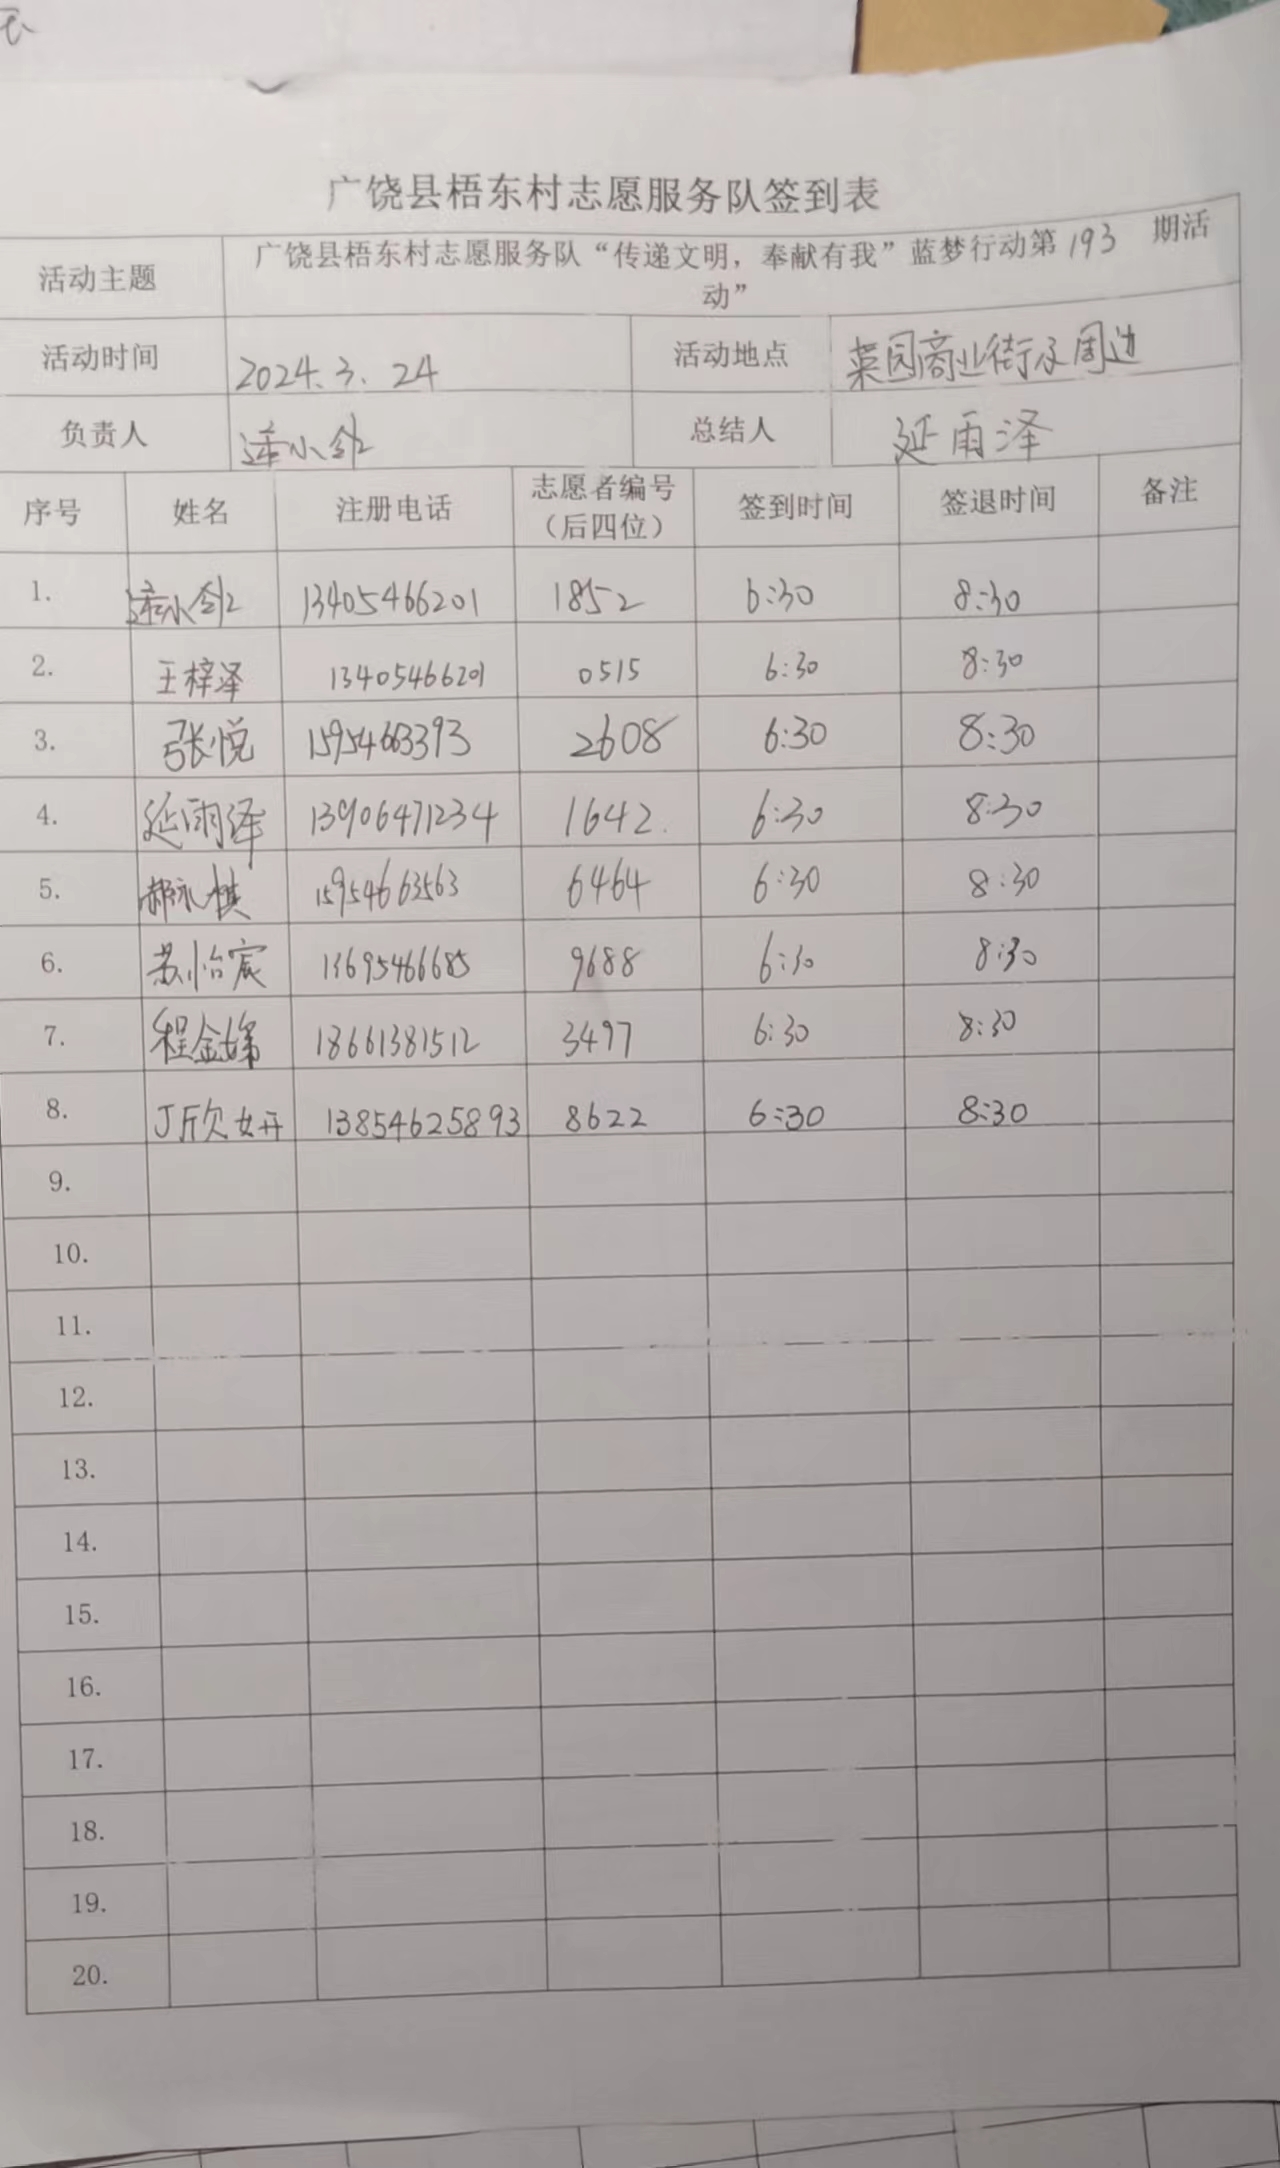 广饶县梧东村志愿服务队签到表
活动主题 广饶县梧东村志愿服务队“传递文明，奉献有我”蓝梦行动第193期活
动”
活动时间 2024.3.24 活动地点 菜园商业街及周边
负责人 小 总结人 延雨泽
序号 姓名 注册电话 志愿者编号（后四位） 签到时间 签退时间 备注
1. 小 13405466201 1852 6:30 8:30
2. 王梓泽 13405466201 0515 6:30 8:30
3. 张悦 15954663393 2608 6:30 8:30
4. 延雨泽 13906471234 1642 6:30 8:30
5. 郝永棋 15954663563 6464 6:30 8:30
6. 苏怡宸 13695466685 9688 6:30 8:30
7. 程金娣 18661381512 3497 6:30 8:30
8. 欣妍 13854625893 8622 6:30 8:30
9.
10.
11.
12.
13.
14.
15.
16.
17.
18.
19.
20.